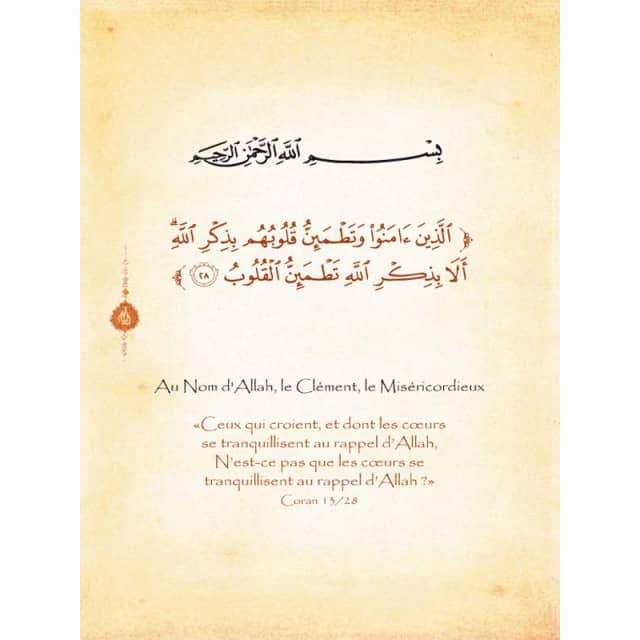 بِسْمِ اللَّهِ الرَّحْمَٰنِ الرَّحِيمِ
﴿ ٱلَّذِينَ ءَامَنُوا۟ وَتَطْمَئِنُّ قُلُوبُهُم بِذِكْرِ ٱللَّهِ ۗ
أَلَا بِذِكْرِ ٱللَّهِ تَطْمَئِنُّ ٱلْقُلُوبُ ٢٨ ﴾
Au Nom d'Allah, le Clément, le Miséricordieux
«Ceux qui croient, et dont les cœurs
se tranquillisent au rappel d'Allah,
N'est-ce pas que les cœurs se
tranquillisent au rappel d'Allah ?»
Coran 13/28